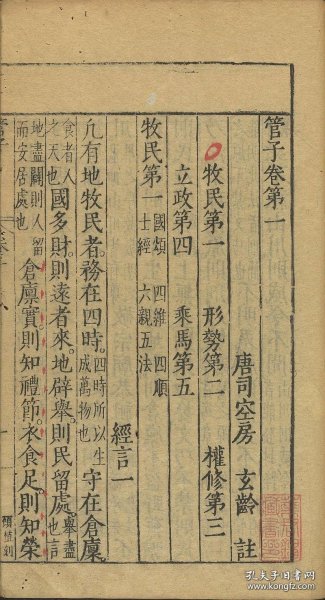 管子卷第一
唐司空房 玄齡 註
牧民第一 形勢第二 權修第三
立政第四 乘馬第五
牧民第一 國頌 四維 四順 士經 六親五法 經言一
凡有地牧民者。務在四時。四時所以生成萬物也 守在倉廩。
食者人之天也 國多財。則遠者來。地辟舉。則民留處。舉盡也言
地盡闢則人留而安居處也 倉廩實。則知禮節。衣食足。則知榮
孔夫子旧书网